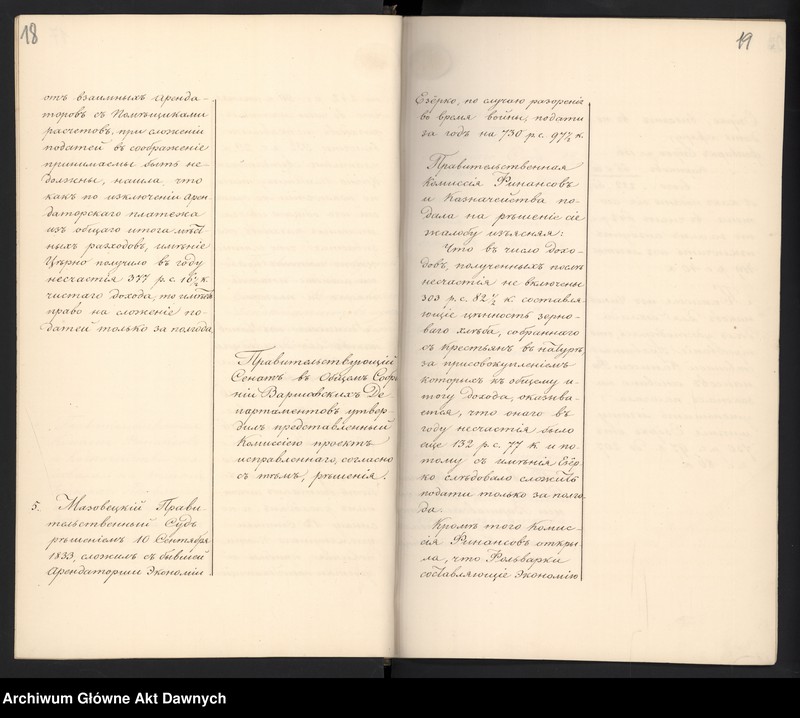 18
отъ взаимныхъ аренда-
торовъ съ Помѣщиками
расчетовъ, при сложеніи
податей въ соображеніе
принимаемы быть не
должны, нашла что
какъ по изключеніи арен
даторского платежа
изъ общаго итога
ныхъ расходовъ, имѣніе
получило въ году
несчастія 377 р. с. 16½ к.
чистаго дохода, то имѣетъ
право на сложеніе по-
датей только за полгода
Правительствующій
Сенатъ въ Общемъ Собра
ніи Варшавскихъ Де
партаментовъ утвер-
дилъ представленный
Комиссіею проектъ
исправленнаго, согласно
съ тѣмъ, рѣшенія.
5. Мазовецкій Прави
тельственный Судъ
рѣшеніемъ 10 Сентября
1833, сложилъ съ бывшей
Арендаторши Экономіи
19
Езёрко, по случаю разоренія
во время войны, подати
за годъ на 730 р. с. 97½ к.
Правительственная
Комиссія Финансовъ
и Казначейства по-
дала на рѣшеніе сіе
жалобу изъясняя:
Что въ число дохо-
довъ, полученныхъ послѣ
несчастія не включены
303 р. с. 82½ к. составля
ющіе цѣнность зерно-
ваго хлѣба, собраннаго
съ крестьянъ въ натурѣ,
за присовокупленіемъ
которыхъ къ общему и-
тогу дохода, оказыва-
ется, что онаго въ
году несчастія было
еще 132 р. с. 77 к. и по-
тому съ имѣнія Езёр-
ко слѣдовало сложить
подати только за полго-
да.
Кромѣ того Комис-
сія Финансовъ откры-
ла, что Фольварки
составляющіе Экономію
Archiwum Główne Akt Dawnych